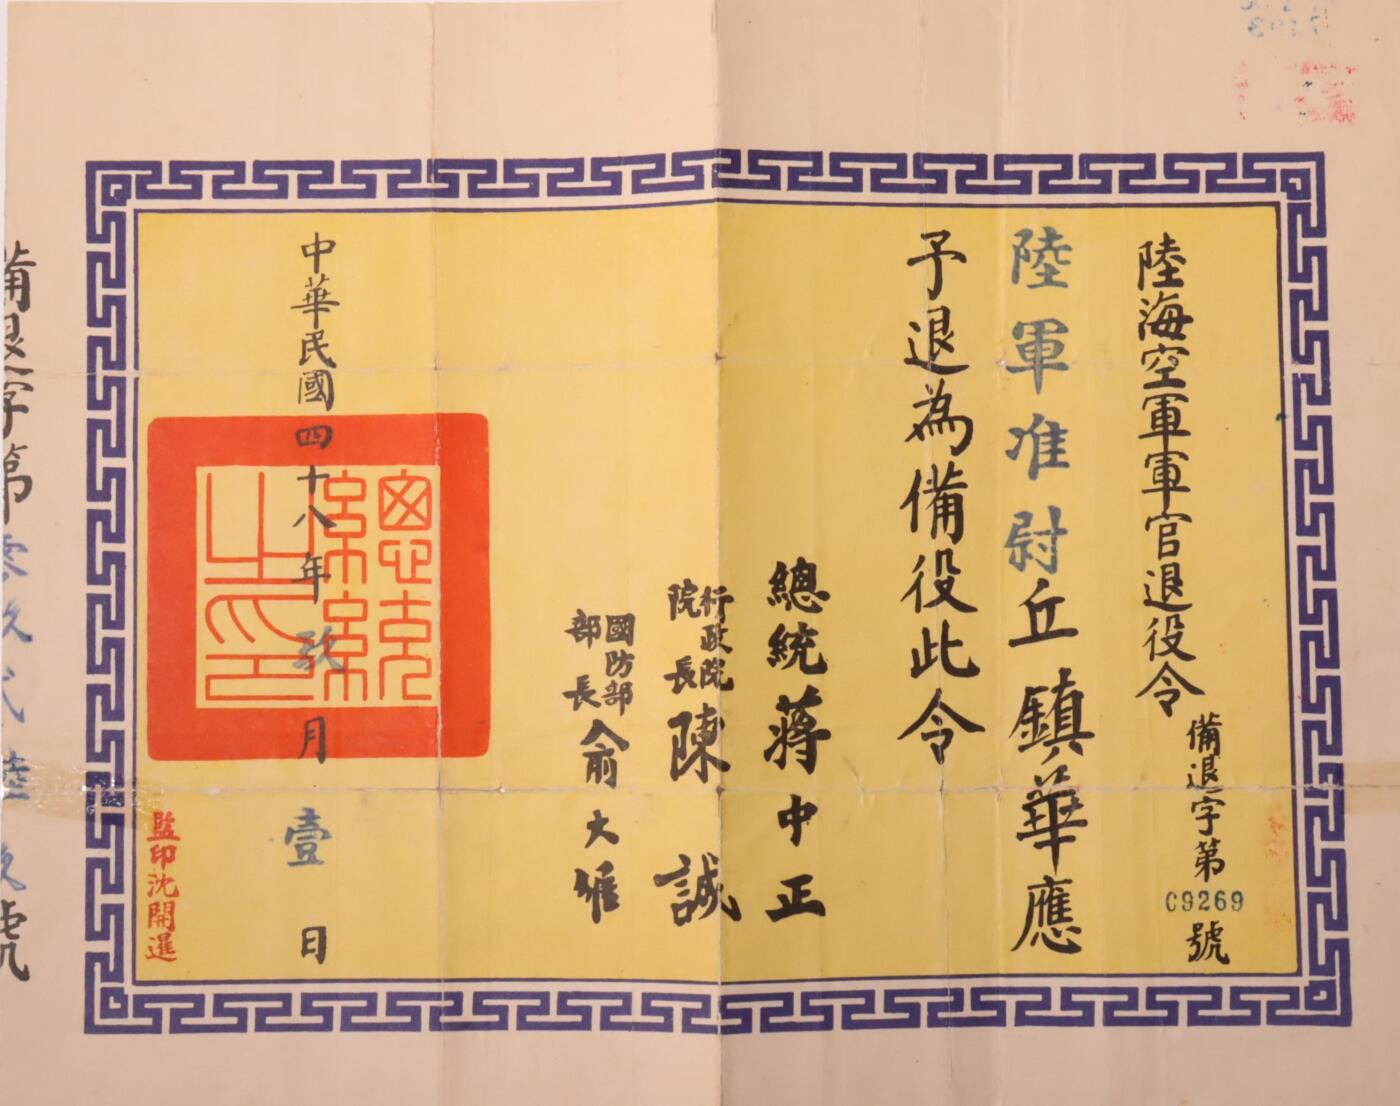 陸海空軍軍官退役令
備退字第
C9269
號
陸軍准尉丘鎮華應
予退為備役此令
總統蔣中正
行政院
院長陳誠
國防部
部長俞大維
中華民國四十八年玖月壹日
總統之印
監印沈開暹
備退字第零玖弍陸玖號